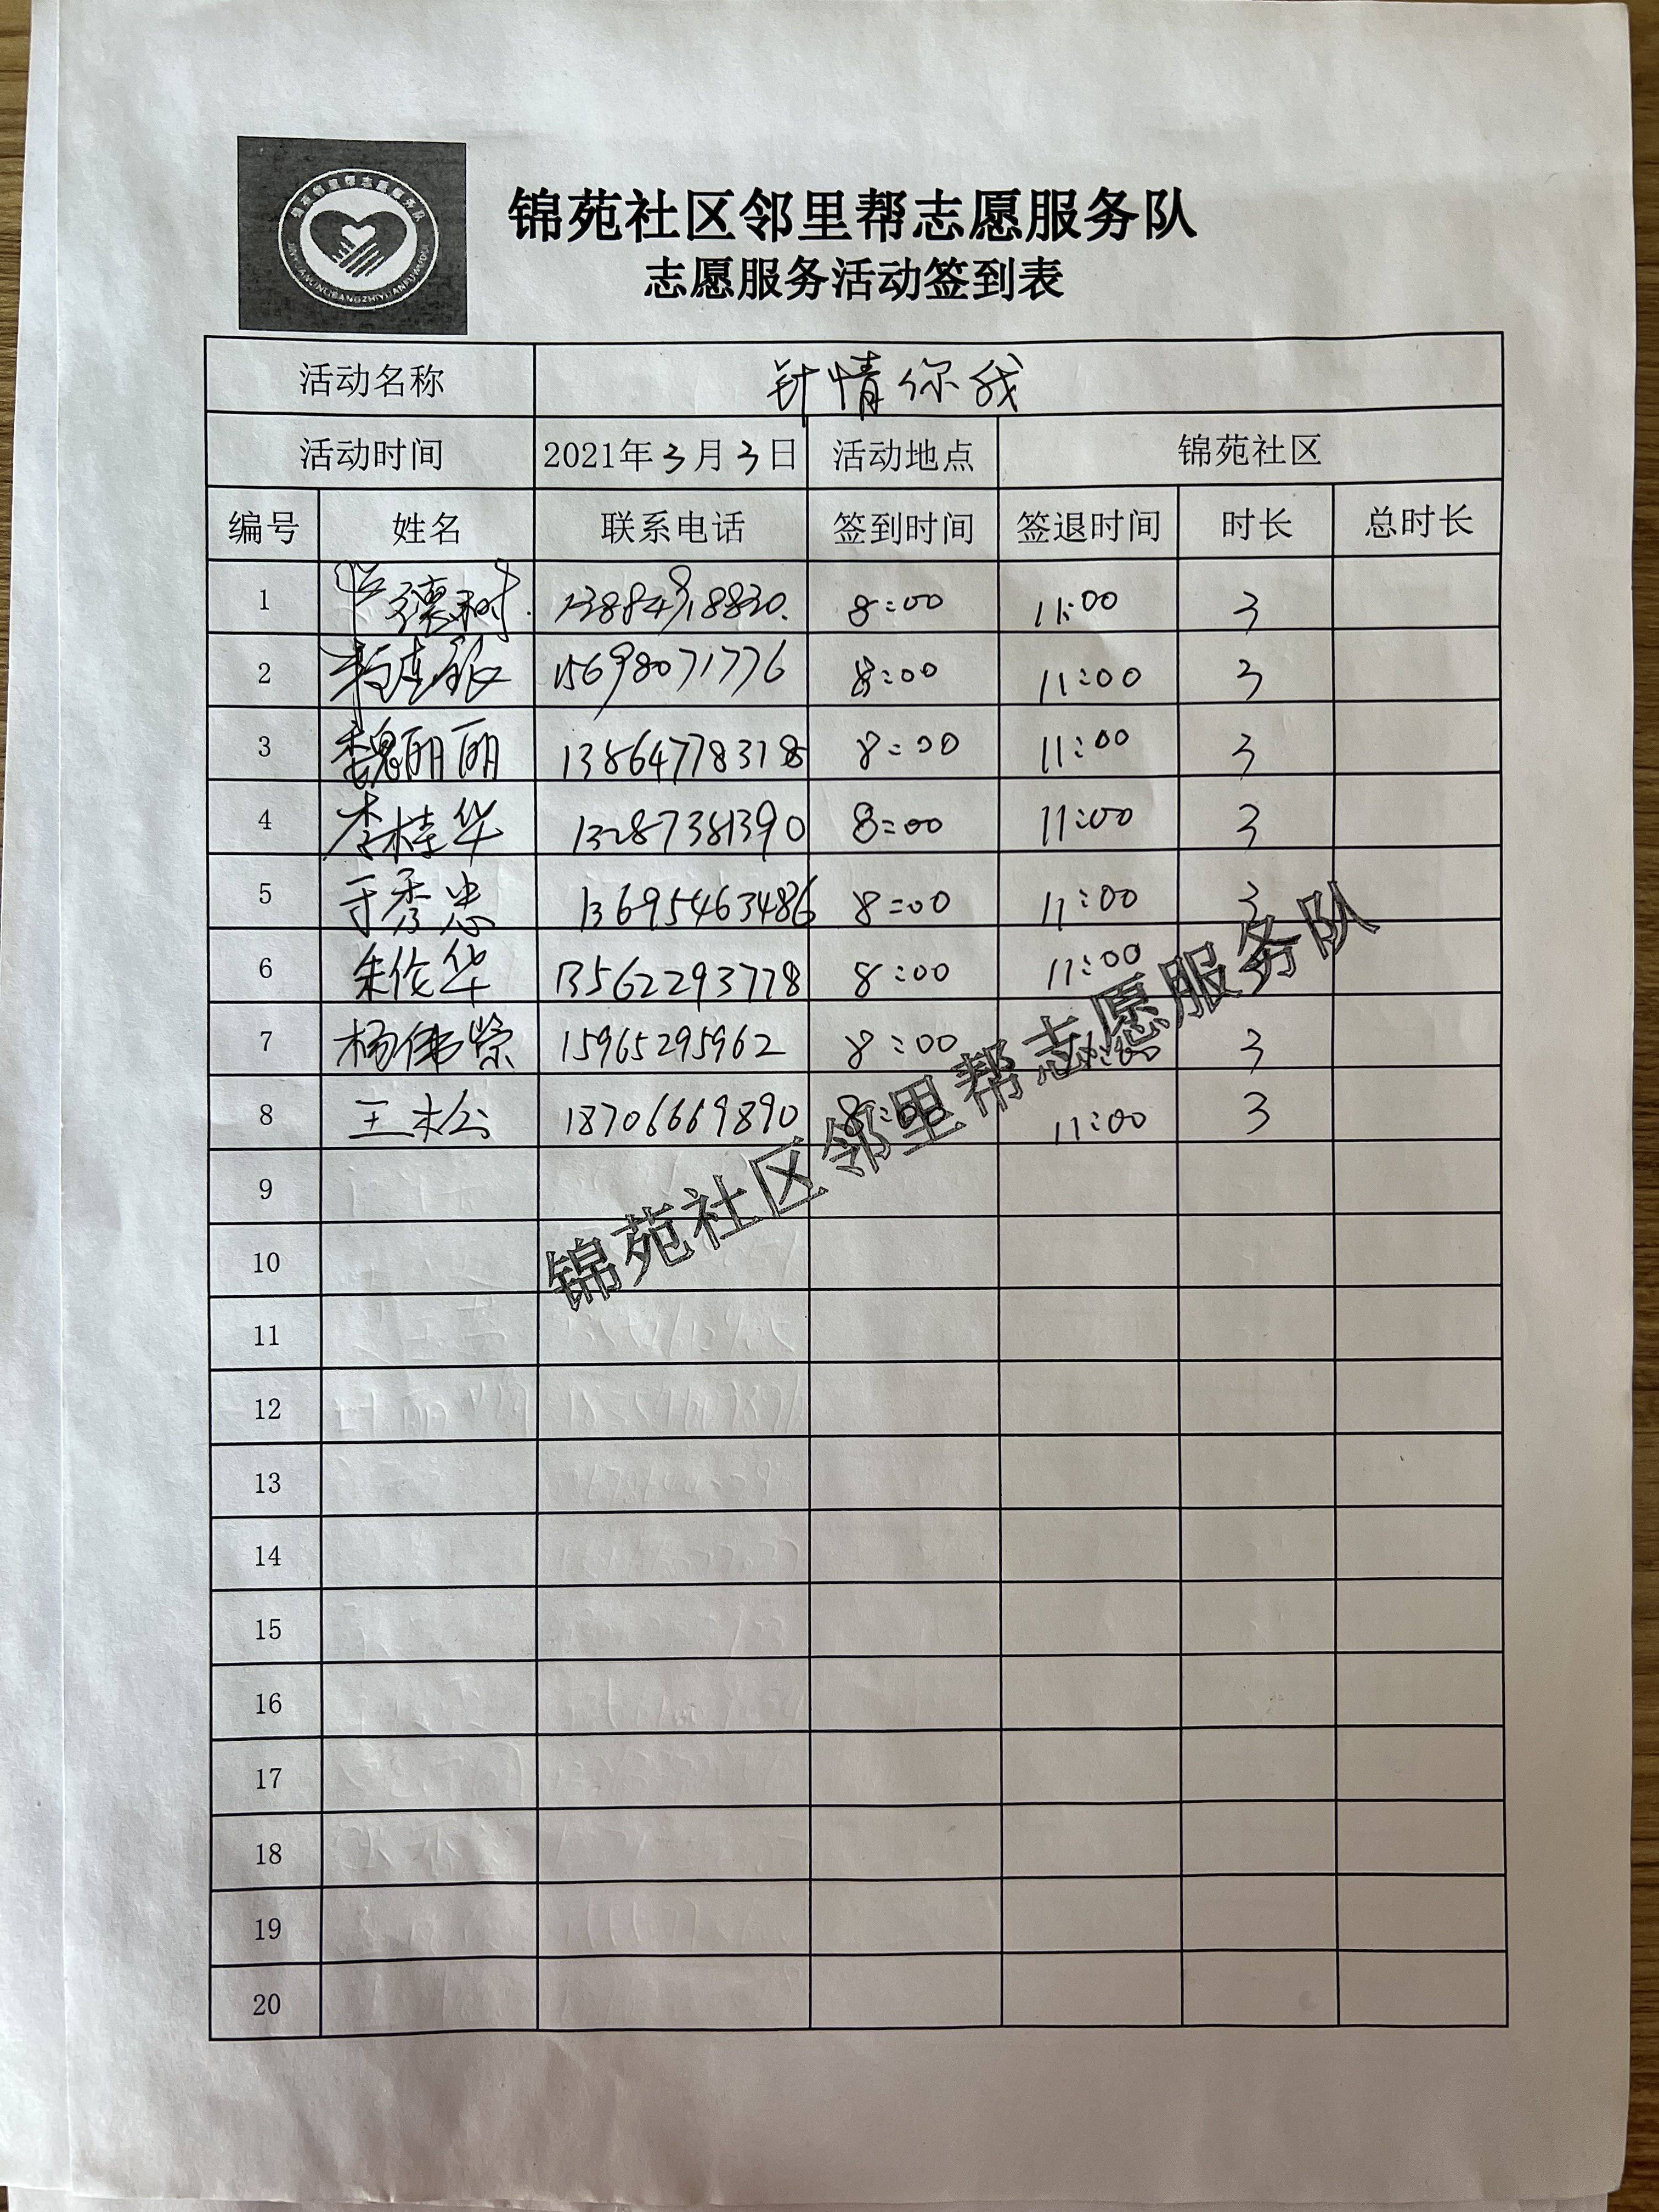 锦苑社区邻里帮志愿服务队
志愿服务活动签到表
活动名称 针情你我
活动时间 2021年3月3日 活动地点 锦苑社区
编号 姓名 联系电话 签到时间 签退时间 时长 总时长
1 德树 8:00 11:00 3
2 15698071776 8:00 11:00 3
3 魏丽丽 13864778318 8:00 11:00 3
4 李桂华 13287381390 8:00 11:00 3
5 于秀忠 13695463486 8:00 11:00 3
6 朱伦华 13562293778 8:00 11:00 3
7 杨伟荣 15965295962 8:00 11:00 3
8 王松 18706669890 8:00 11:00 3
9
10
11
12
13
14
15
16
17
18
19
20
锦苑社区邻里帮志愿服务队